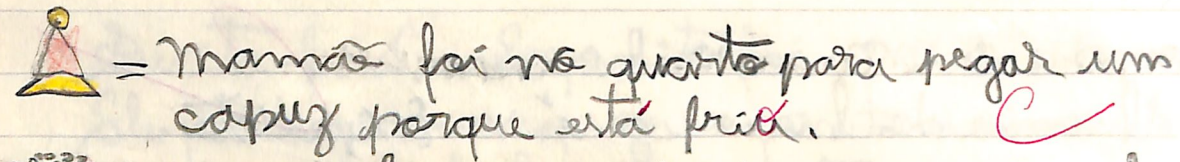 = mamãe foi no quarto para pegar um
capuz porque está frio.
C